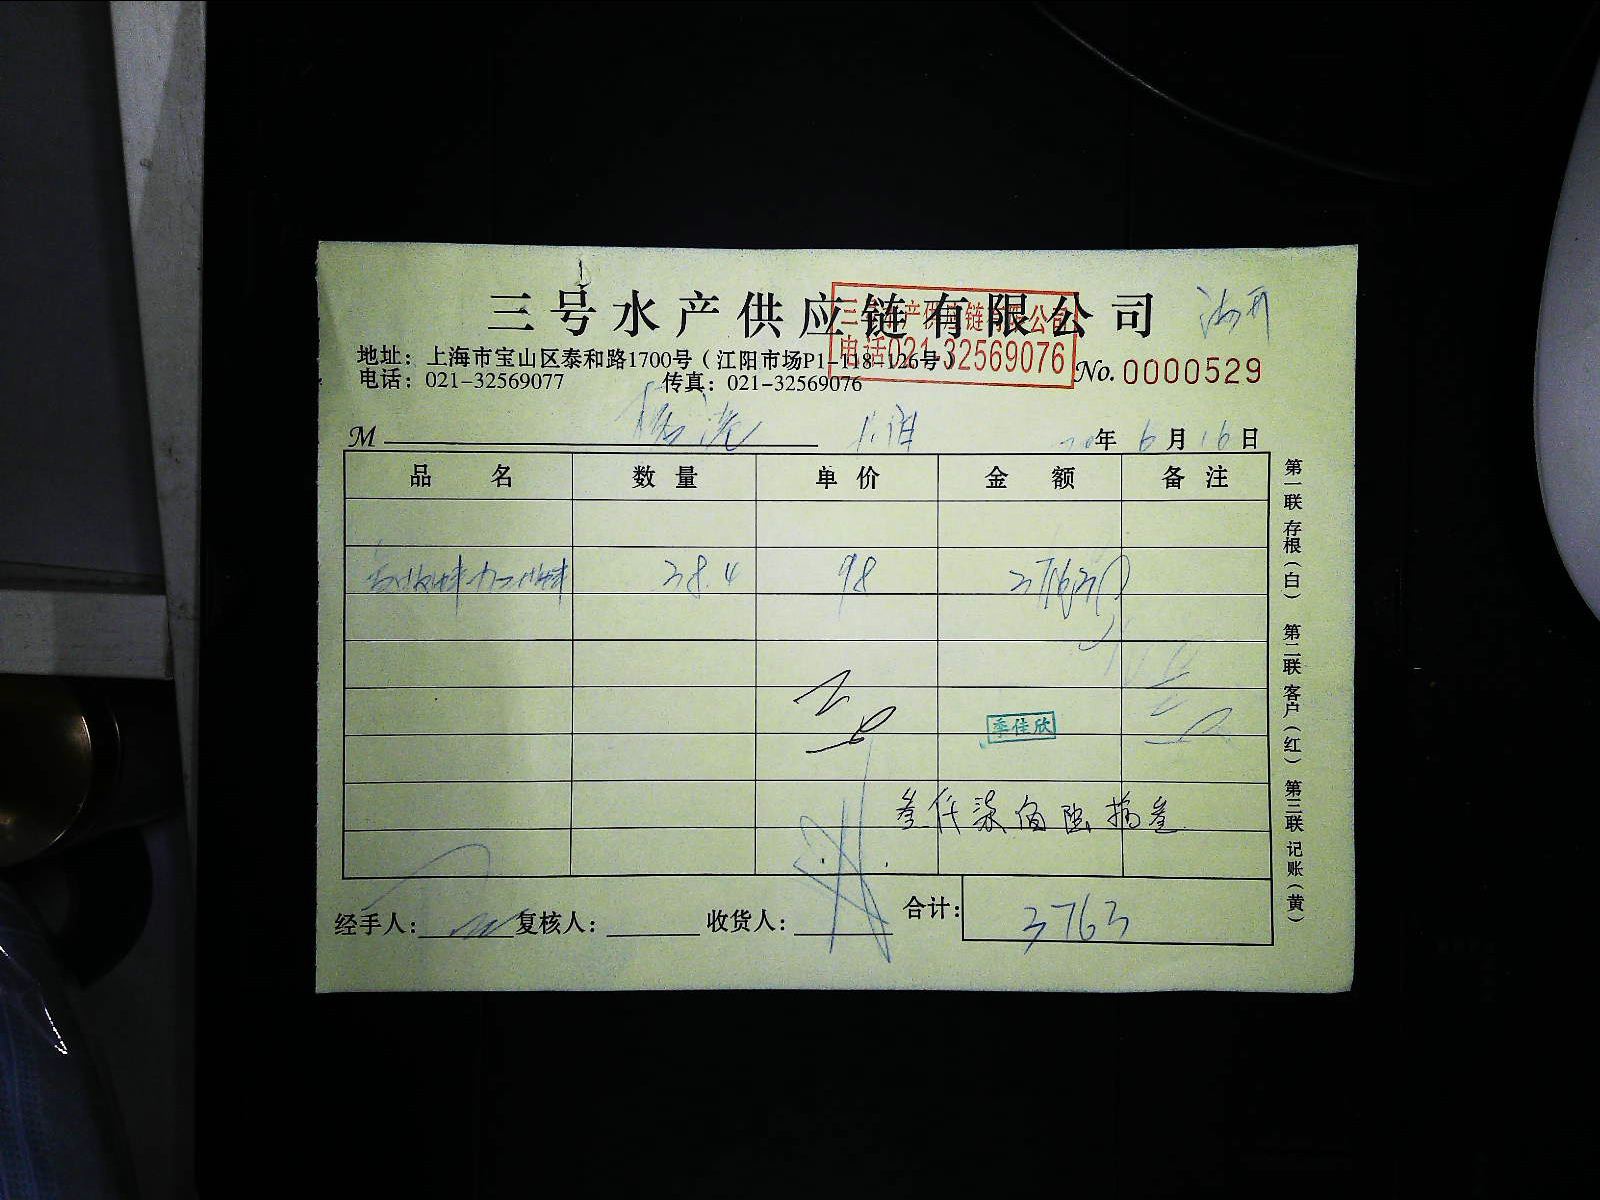 三号水产供应链有限公司
三号水产供应链有限公司
电话021-32569076
地址：上海市宝山区泰和路1700号（江阳市场P1-118-126号）
电话：021-32569077 传真：021-32569076
No. 0000529
M
年 6 月 16 日
品名 数量 单价 金额 备注
38.4 98
季佳欣
叁仟柒佰陆拾叁
经手人： 复核人： 收货人： 合计： 3763
第一联 存根（白） 第二联 客户（红） 第三联 记账（黄）